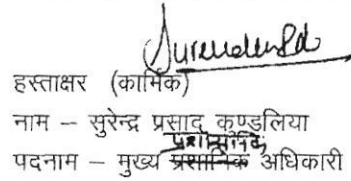 Surendensd
हस्ताक्षर (कार्मिक)
नाम – सुरेन्द्र प्रसाद कुण्डलिया
प्रशासनिक
पदनाम – मुख्य प्रशानिक अधिकारी